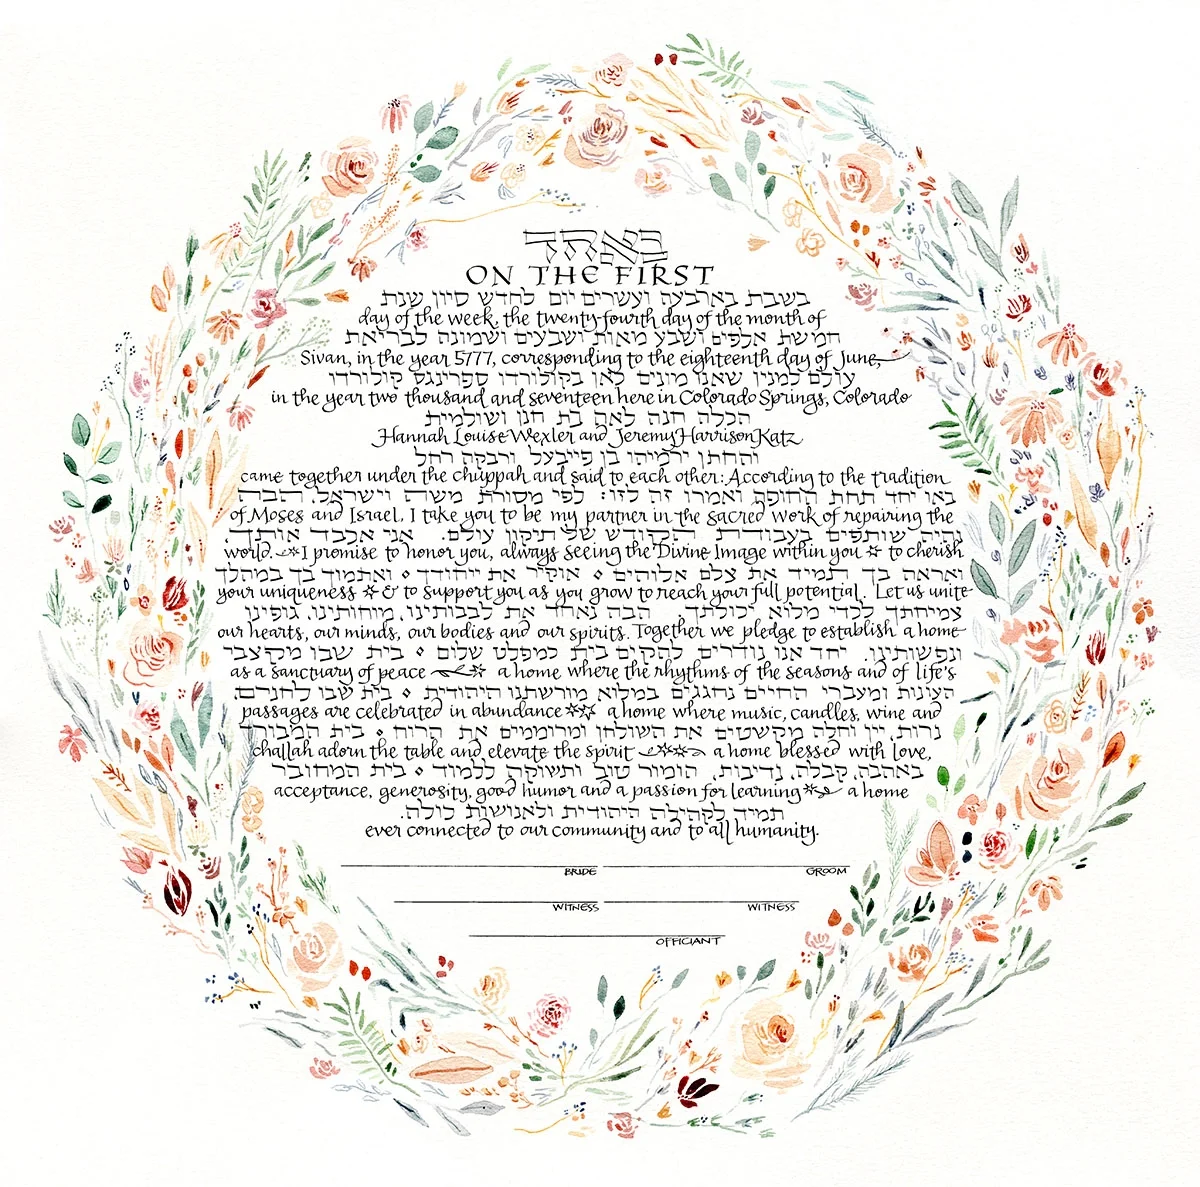 באחד
ON THE FIRST
בשבת בארבעה ועשרים יום לחדש סיון שנת
day of the week, the twenty-fourth day of the month of
חמשת אלפים ושבע מאות ושבעים ושמונה לבריאת
Sivan, in the year 5777, corresponding to the eighteenth day of June,
עולם למנין שאנו מונים כאן בקולורדו ספרינגס קולורדו
in the year two thousand and seventeen here in Colorado Springs, Colorado
הכלה חנה לאה בת חנן ושולמית
Hannah Louise Wexler and Jeremy Harrison Katz
והחתן ירמיהו בן פייבעל ורבקה רחל
came together under the chuppah and said to each other: According to the tradition
באו יחד תחת החופה ואמרו זה לזו: לפי מסורת משה וישראל, הבה
of Moses and Israel, I take you to be my partner in the sacred work of repairing the
נהיה שותפים בעבודת הקודש של תיקון עולם. אני אכבד אותך,
world. I promise to honor you, always seeing the Divine Image within you to cherish
ואראה בך תמיד את צלם אלוהים ⋄ אוקיר את ייחודך ⋄ ואתמוך בך במהלך
your uniqueness & to support you as you grow to reach your full potential. Let us unite
צמיחתך לכדי מלוא יכולתך. הבה נאחד את לבבותינו, מוחותינו, גופינו
our hearts, our minds, our bodies and our spirits. Together we pledge to establish a home
ונפשותינו. יחד אנו נודרים להקים בית כמפלט שלום ⋄ בית שבו מקצבי
as a sanctuary of peace a home where the rhythms of the seasons and of life's
העונות ומעברי החיים נחגגים במלוא מורשתנו היהודית ⋄ בית שבו
passages are celebrated in abundance a home where music, candles, wine and
נרות, יין וחלה מקשטים את השולחן ומרוממים את הרוח ⋄ בית המבורך
challah adorn the table and elevate the spirit a home blessed with love,
באהבה, קבלה, נדיבות, הומור טוב ותשוקה ללמוד ⋄ בית המחובר
acceptance, generosity, good humor and a passion for learning a home
תמיד לקהילה היהודית ולאנושות כולה.
ever connected to our community and to all humanity.
BRIDE GROOM
WITNESS WITNESS
OFFICIANT